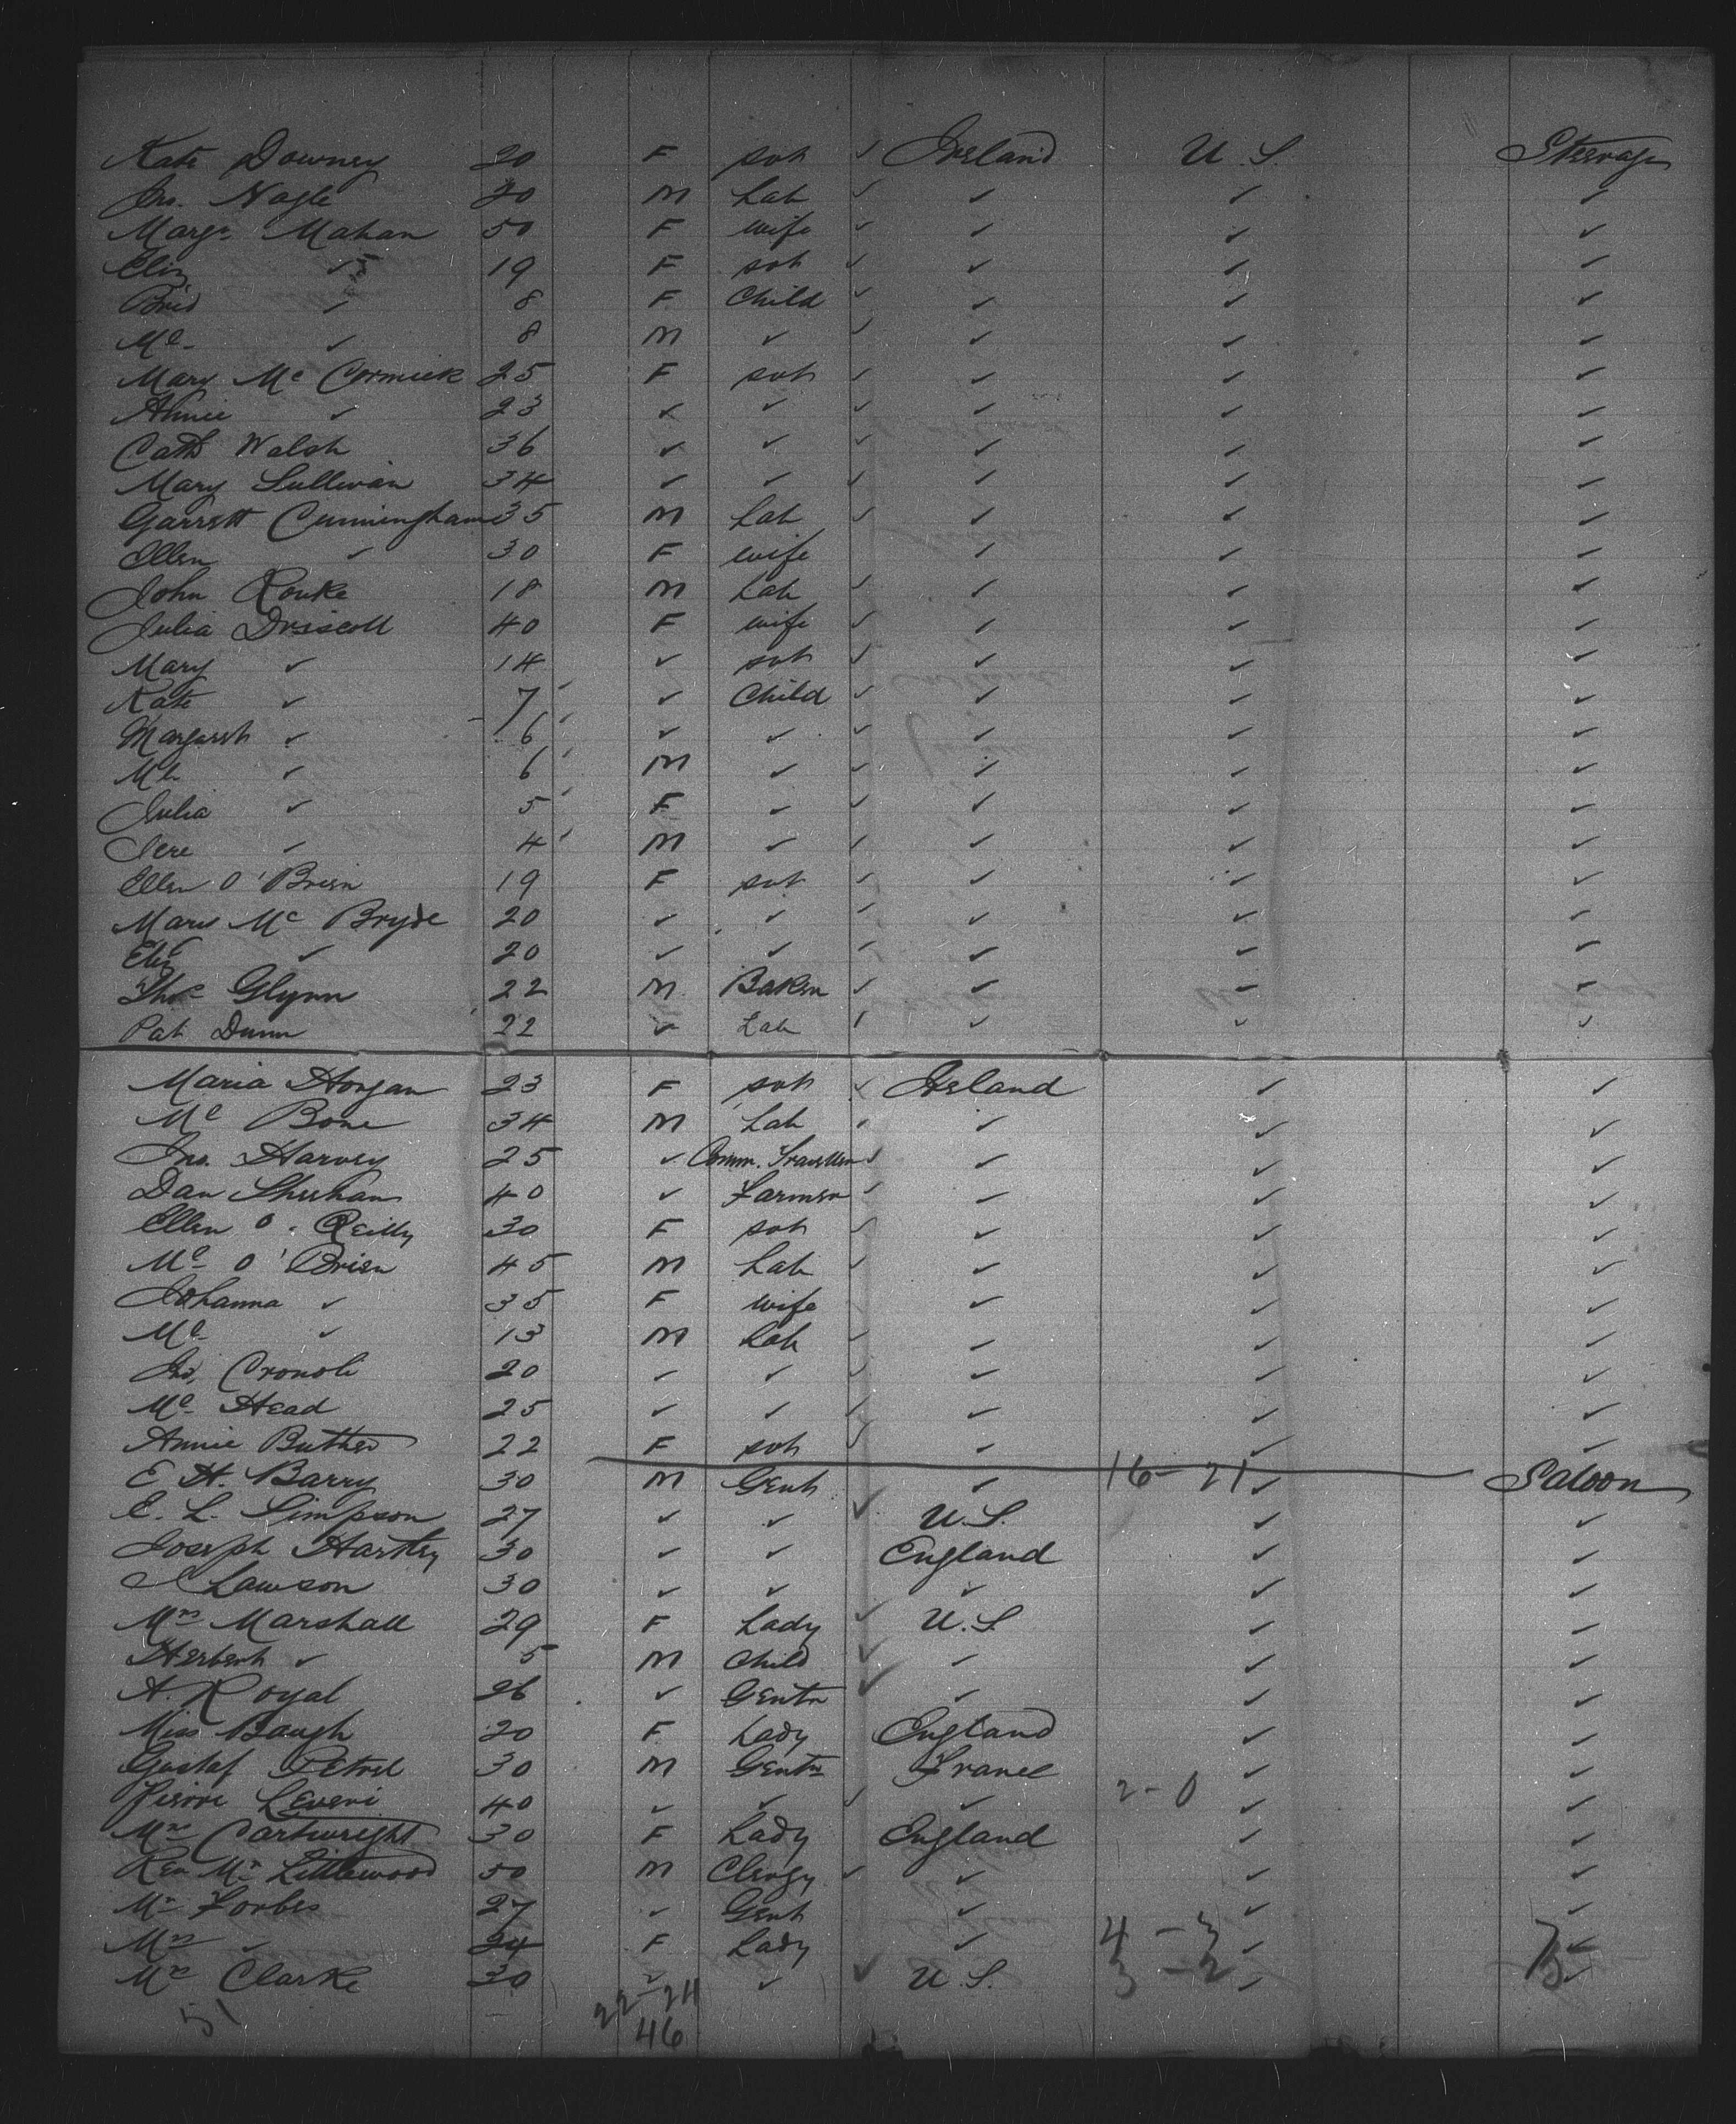 Kate Downey 20 F svt ✓ Ireland U.S. Steerage
Jno. Nagle 20 M Lab ✓ ✓ ✓ ✓
Margt Mahan 50 F wife ✓ ✓ ✓ ✓
Eliz ✓ 19 F svt ✓ ✓ ✓ ✓
Brid ✓ 8 F Child ✓ ✓ ✓ ✓
Ml ✓ 8 M ✓ ✓ ✓ ✓ ✓
Mary Mc Cormick 25 F svt ✓ ✓ ✓ ✓
Annie ✓ 23 ✓ ✓ ✓ ✓ ✓ ✓
Cath Walsh 36 ✓ ✓ ✓ ✓ ✓ ✓
Mary Sullivan 34 ✓ ✓ ✓ ✓ ✓ ✓
Garrett Cunningham 35 M Lab ✓ ✓ ✓ ✓
Ellen ✓ 30 F wife ✓ ✓ ✓
John Rouke 18 M Lab ✓ ✓ ✓ ✓
Julia Driscoll 40 F wife ✓ ✓ ✓ ✓
Mary ✓ 14 ✓ svt ✓ ✓ ✓ ✓
Kate ✓ 7 ✓ Child ✓ ✓ ✓ ✓
Margaret ✓ 6 ✓ ✓ ✓ ✓ ✓ ✓
Ml ✓ 6 M ✓ ✓ ✓ ✓ ✓
Julia ✓ 5 F ✓ ✓ ✓ ✓ ✓
Jere ✓ 4 M ✓ ✓ ✓ ✓ ✓
Ellen O'Brien 19 F svt ✓ ✓ ✓ ✓
Mary Mc Bryde 20 ✓ ✓ ✓ ✓ ✓ ✓
Eliz ✓ 20 ✓ ✓ ✓ ✓ ✓ ✓
Thos Glynn 22 M Baker ✓ ✓ ✓ ✓
Pat Dunn 22 ✓ Lab ✓ ✓ ✓ ✓
Maria Horgan 23 F svt ✓ Ireland ✓ ✓
Ml Bone 34 M Lab ✓ ✓ ✓ ✓
Jno. Harvey 25 ✓ Comm. Traveller ✓ ✓ ✓ ✓
Dan Sheehan 40 ✓ Farmer ✓ ✓ ✓ ✓
Ellen O'Reilly 30 F svt ✓ ✓ ✓ ✓
Ml O'Brien 45 M Lab ✓ ✓ ✓ ✓
Johanna ✓ 35 F wife ✓ ✓ ✓
Ml ✓ 13 M Lab ✓ ✓ ✓ ✓
20 ✓ ✓ ✓ ✓ ✓ ✓
Ml Head 25 ✓ ✓ ✓ ✓ ✓ ✓
Annie Butler 22 F svt ✓ ✓ ✓ ✓
E. H. Barry 30 M Gent ✓ 16-21 ✓ Saloon
E. L. Simpson 27 ✓ ✓ ✓ U.S. ✓ ✓
Joseph Hartley 30 ✓ ✓ England ✓ ✓
Lawson 30 ✓ ✓ ✓ ✓ ✓
Mrs Marshall 29 F Lady ✓ U.S ✓ ✓
Herbert ✓ 5 M Child ✓ ✓ ✓ ✓
A. Royal 26 ✓ Gentn ✓ ✓ ✓ ✓
Miss Baugh 20 F Lady England ✓ ✓
Gustaf 30 M Gentn France ✓ ✓
Pierre 40 ✓ ✓ ✓ ✓ 2-0 ✓ ✓
Mrs Cartwright 30 F Lady England ✓ ✓
Rev Mr Littlewood 50 M Clergy ✓ ✓ ✓ ✓
Mr Forbes 27 ✓ Gent ✓ ✓ ✓
Mrs ✓ 24 F Lady ✓ 4-3 ✓ 7 ✓
Mrs Clarke 30 ✓ ✓ ✓ U.S. 3-2 ✓ ✓
51 22-24
46